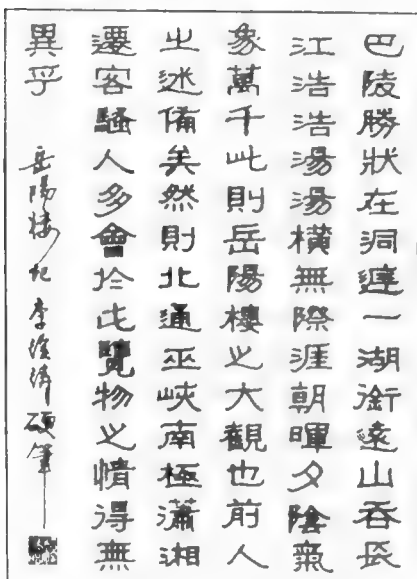 巴陵勝狀在洞庭一湖銜遠山吞長
江浩浩湯湯橫無際涯朝暉夕陰氣
象萬千此則岳陽樓之大觀也前人
之述備矣然則北通巫峽南極瀟湘
遷客騷人多會於此覽物之情得無
異乎 岳陽樓記 李 碩筆